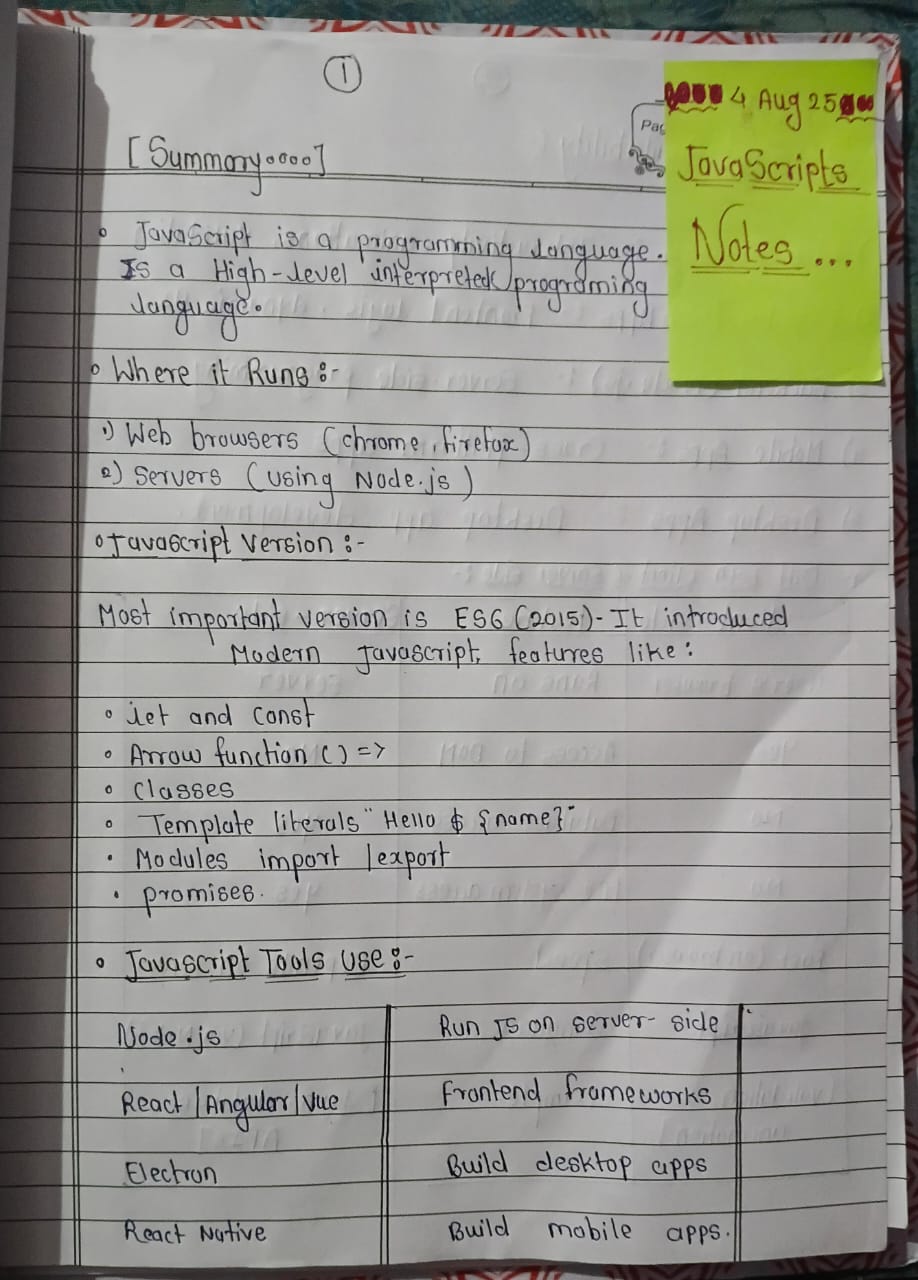 1
4 Aug 25
JavaScripts
Notes ...
Pag
[Summary oooo]
• JavaScript is a programming language.
Is a High-level interpreted programing
language.
• Where it Runs :-
1) Web browsers (chrome, firefox)
2) Servers (using Node.js)
• Javascript Version :-
Most important version is ES6 (2015)- It introduced
Modern Javascript features like:
• let and const
• Arrow function () =>
• Classes
• Template literals "Hello $ {name}"
• Modules import / export
• promises.
• Javascript Tools use :-
Node.js Run JS on server-side
React / Angular / Vue Frontend frameworks
Electron Build desktop apps
React Native Build mobile apps.